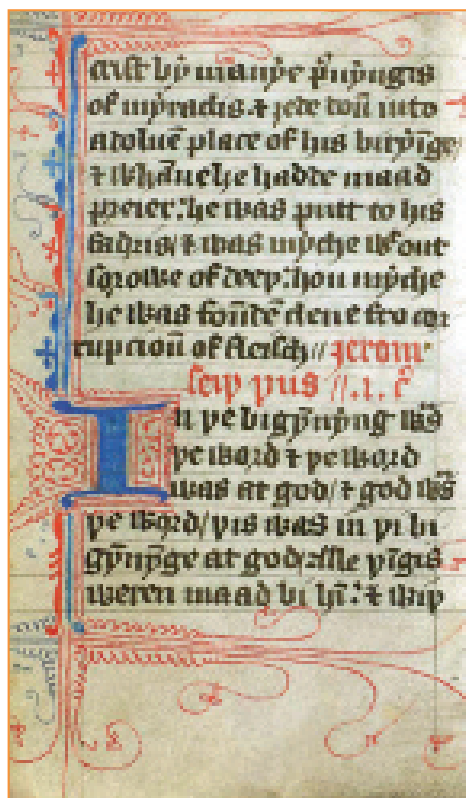 crist bẏ manẏe p̃uẏngis
of mẏraclis ⁊ ȝede doũ into
a doluẽ place of his birẏĩge/
⁊ whãne he hadde maad
preier: he was putt to his
fadris/ ⁊ was mẏche wᵗout
sorowe of deeþ: hou mẏche
he was foũdẽ clene fro cor
rupcioũ of fleisch// Jerom
seiþ þus //.1. c̃
In þe bigẏ̃nẏng was
þe word ⁊ þe word
was at god/ ⁊ god was
þe word/ þis was in þe bi
gẏ̃nẏnge at god/ alle þĩgis
weren maad bi hĩ: ⁊ wiþ